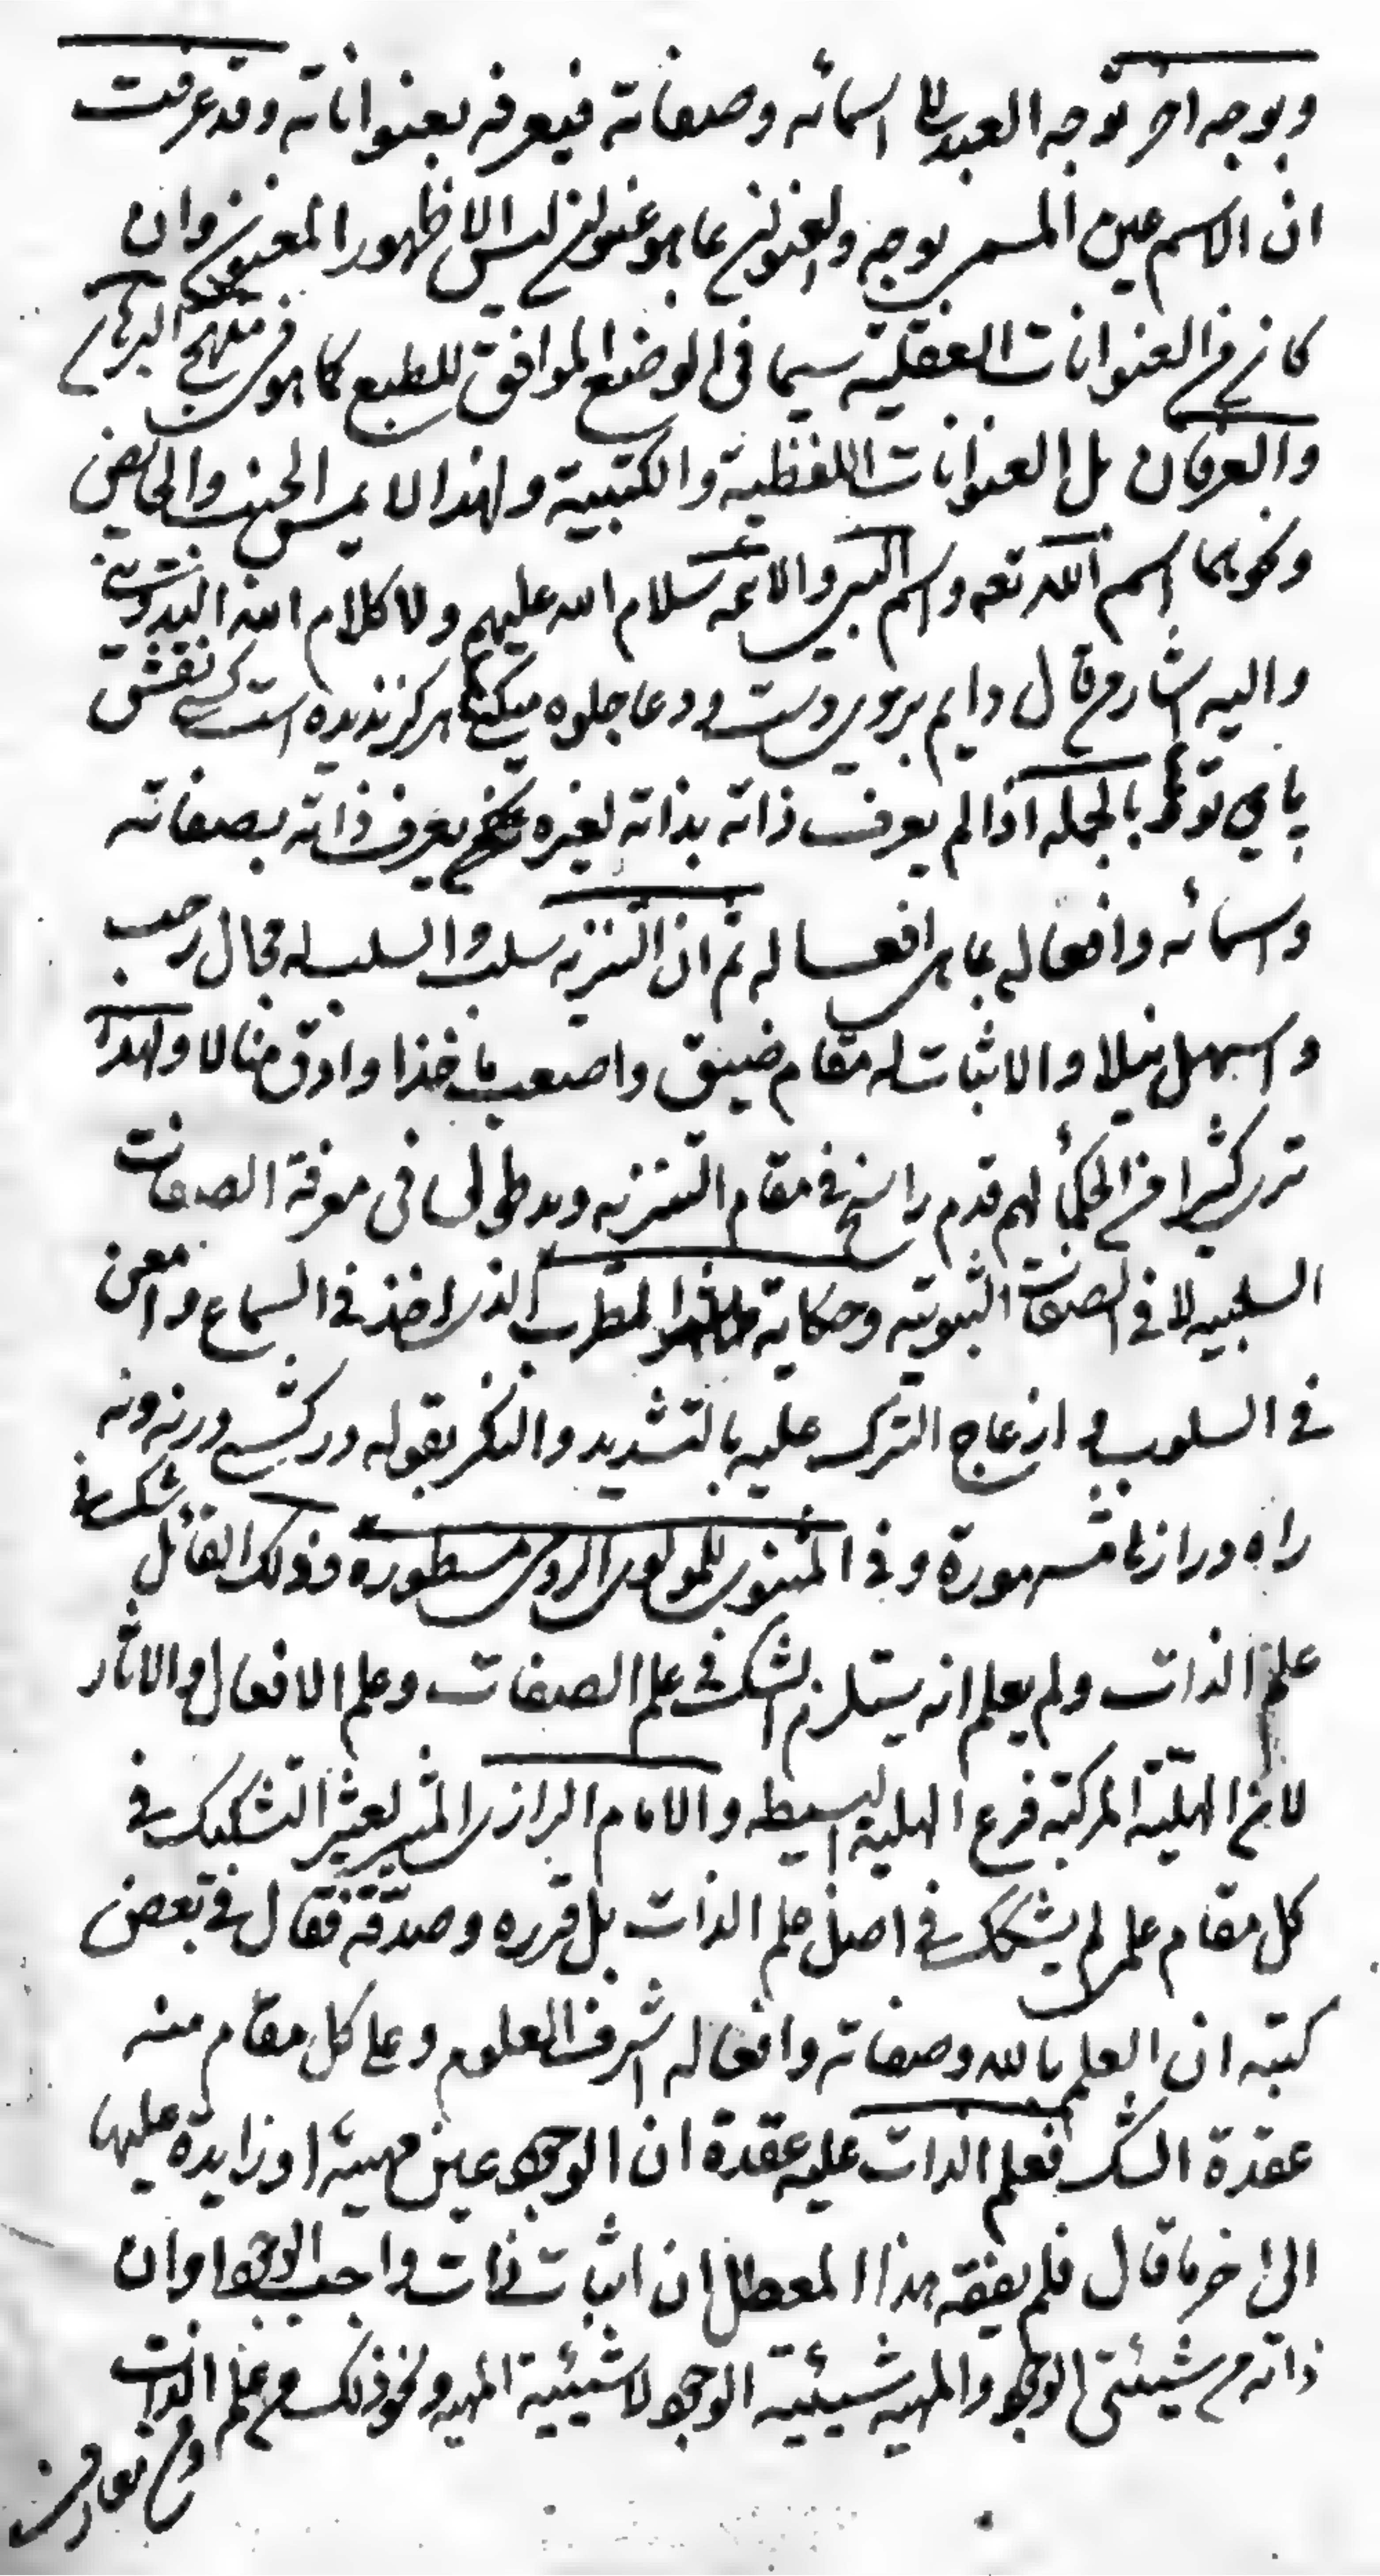 وبوجه اخر توجه العبد الى اسمائه وصفاته فيعرفه بعنواناته وقد عرفت
ان الاسم عين المسمى بوجه والعنوان بما هو عنوان ليس الا ظهور المعنون وان
كان من العنوانات العقلية سيما فى الوضع الموافق للطبع كما هو فى منهج البرهان
والعرفان بل العنوانات اللفظية والكتبية ولهذا لا يمس الجنب والحائض
ونحوهما اسم الله تعه واسم النبى والائمه سلام الله عليهم ولا كلام الله
واليه اشار من قال دايم بروى دست ودعا جلوه ميكنى هركز نديده است كسى نقش
پاى تو بالجمله اذا لم يعرف ذاته بذاته لغيره يعرف ذاته بصفاته
واسمائه وافعاله بما هى افعاله ثم ان التنزيه سلب والسلب له مجال رحب
واسهل نيلا والاثبات له مقام ضيق واصعب ماخذا وادق منالا ولهذا
ترى كثيرا من الحكماء لهم قدم راسخ فى مقام التنزيه ويد طولى فى معرفة الصفات
السلبيه لا فى الصفات الثبوتيه وحكاية المطرب الذى اخذ فى السماع وامعن
فى السلوب و ازعاج الترك عليه بالتشديد والنكر بقوله دركشى ورنه ونه
راه دراز نا مشهورة وفى المثنوى للمولوى الرومى مسطوره وذلك القائل شك فى
علم الذات ولم يعلم انه يستلزم الشك فى علم الصفات وعلم الافعال والاثار
لان الهلية المركبة فرع الهلية البسيطه والامام الرازى المثير لعثير التشكيك فى
كل مقام علمى لم يشكك فى اصل علم الذات بل قرره وصدقه فقال فى بعض
كتبه ان العلم بالله وصفاته وافعاله اشرف العلوم وعلى كل مقام منه
عقدة الشك فعلم الذات عليه عقدة ان الوجود عين مهية او زايدة عليها
الى اخر ما قال فلم يفقه هذا المعطل ان اثبات ذات واجب الوجود وان
ذاته من شيئتى الوجود والمهيه شيئية الوجود لا شيئية المهيه ونحو ذلك من علم الذات